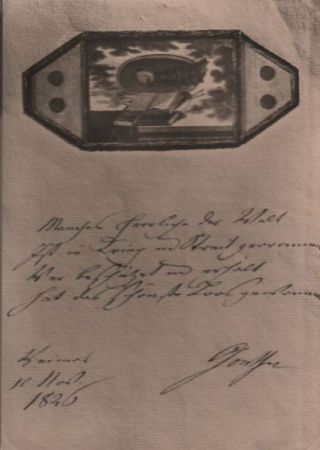 Manches Herrliche der Welt
Ist in Krieg und Streit zerronnen
Wer beschützet und erhält
Hat das schönste Loos gewonnen
Weimar Goethe
10
1826